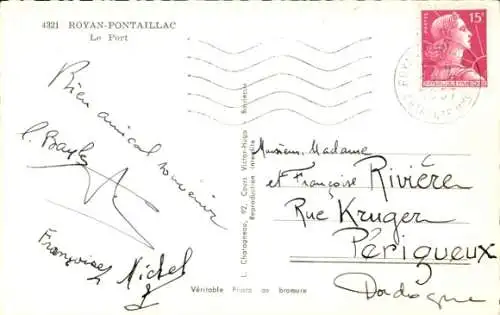 4321 ROYAN-PONTAILLAC
Le Port
POSTES 15F
Bien amical souvenir
Françoise
Michel
L. Charagneau, 92, Cours Victor-Hugo - Bordeaux
Reproduction interdite
Monsieur, Madame
et Françoise Rivière
Rue Kruger
Périgueux
Dordogne
Véritable Photo au bromure